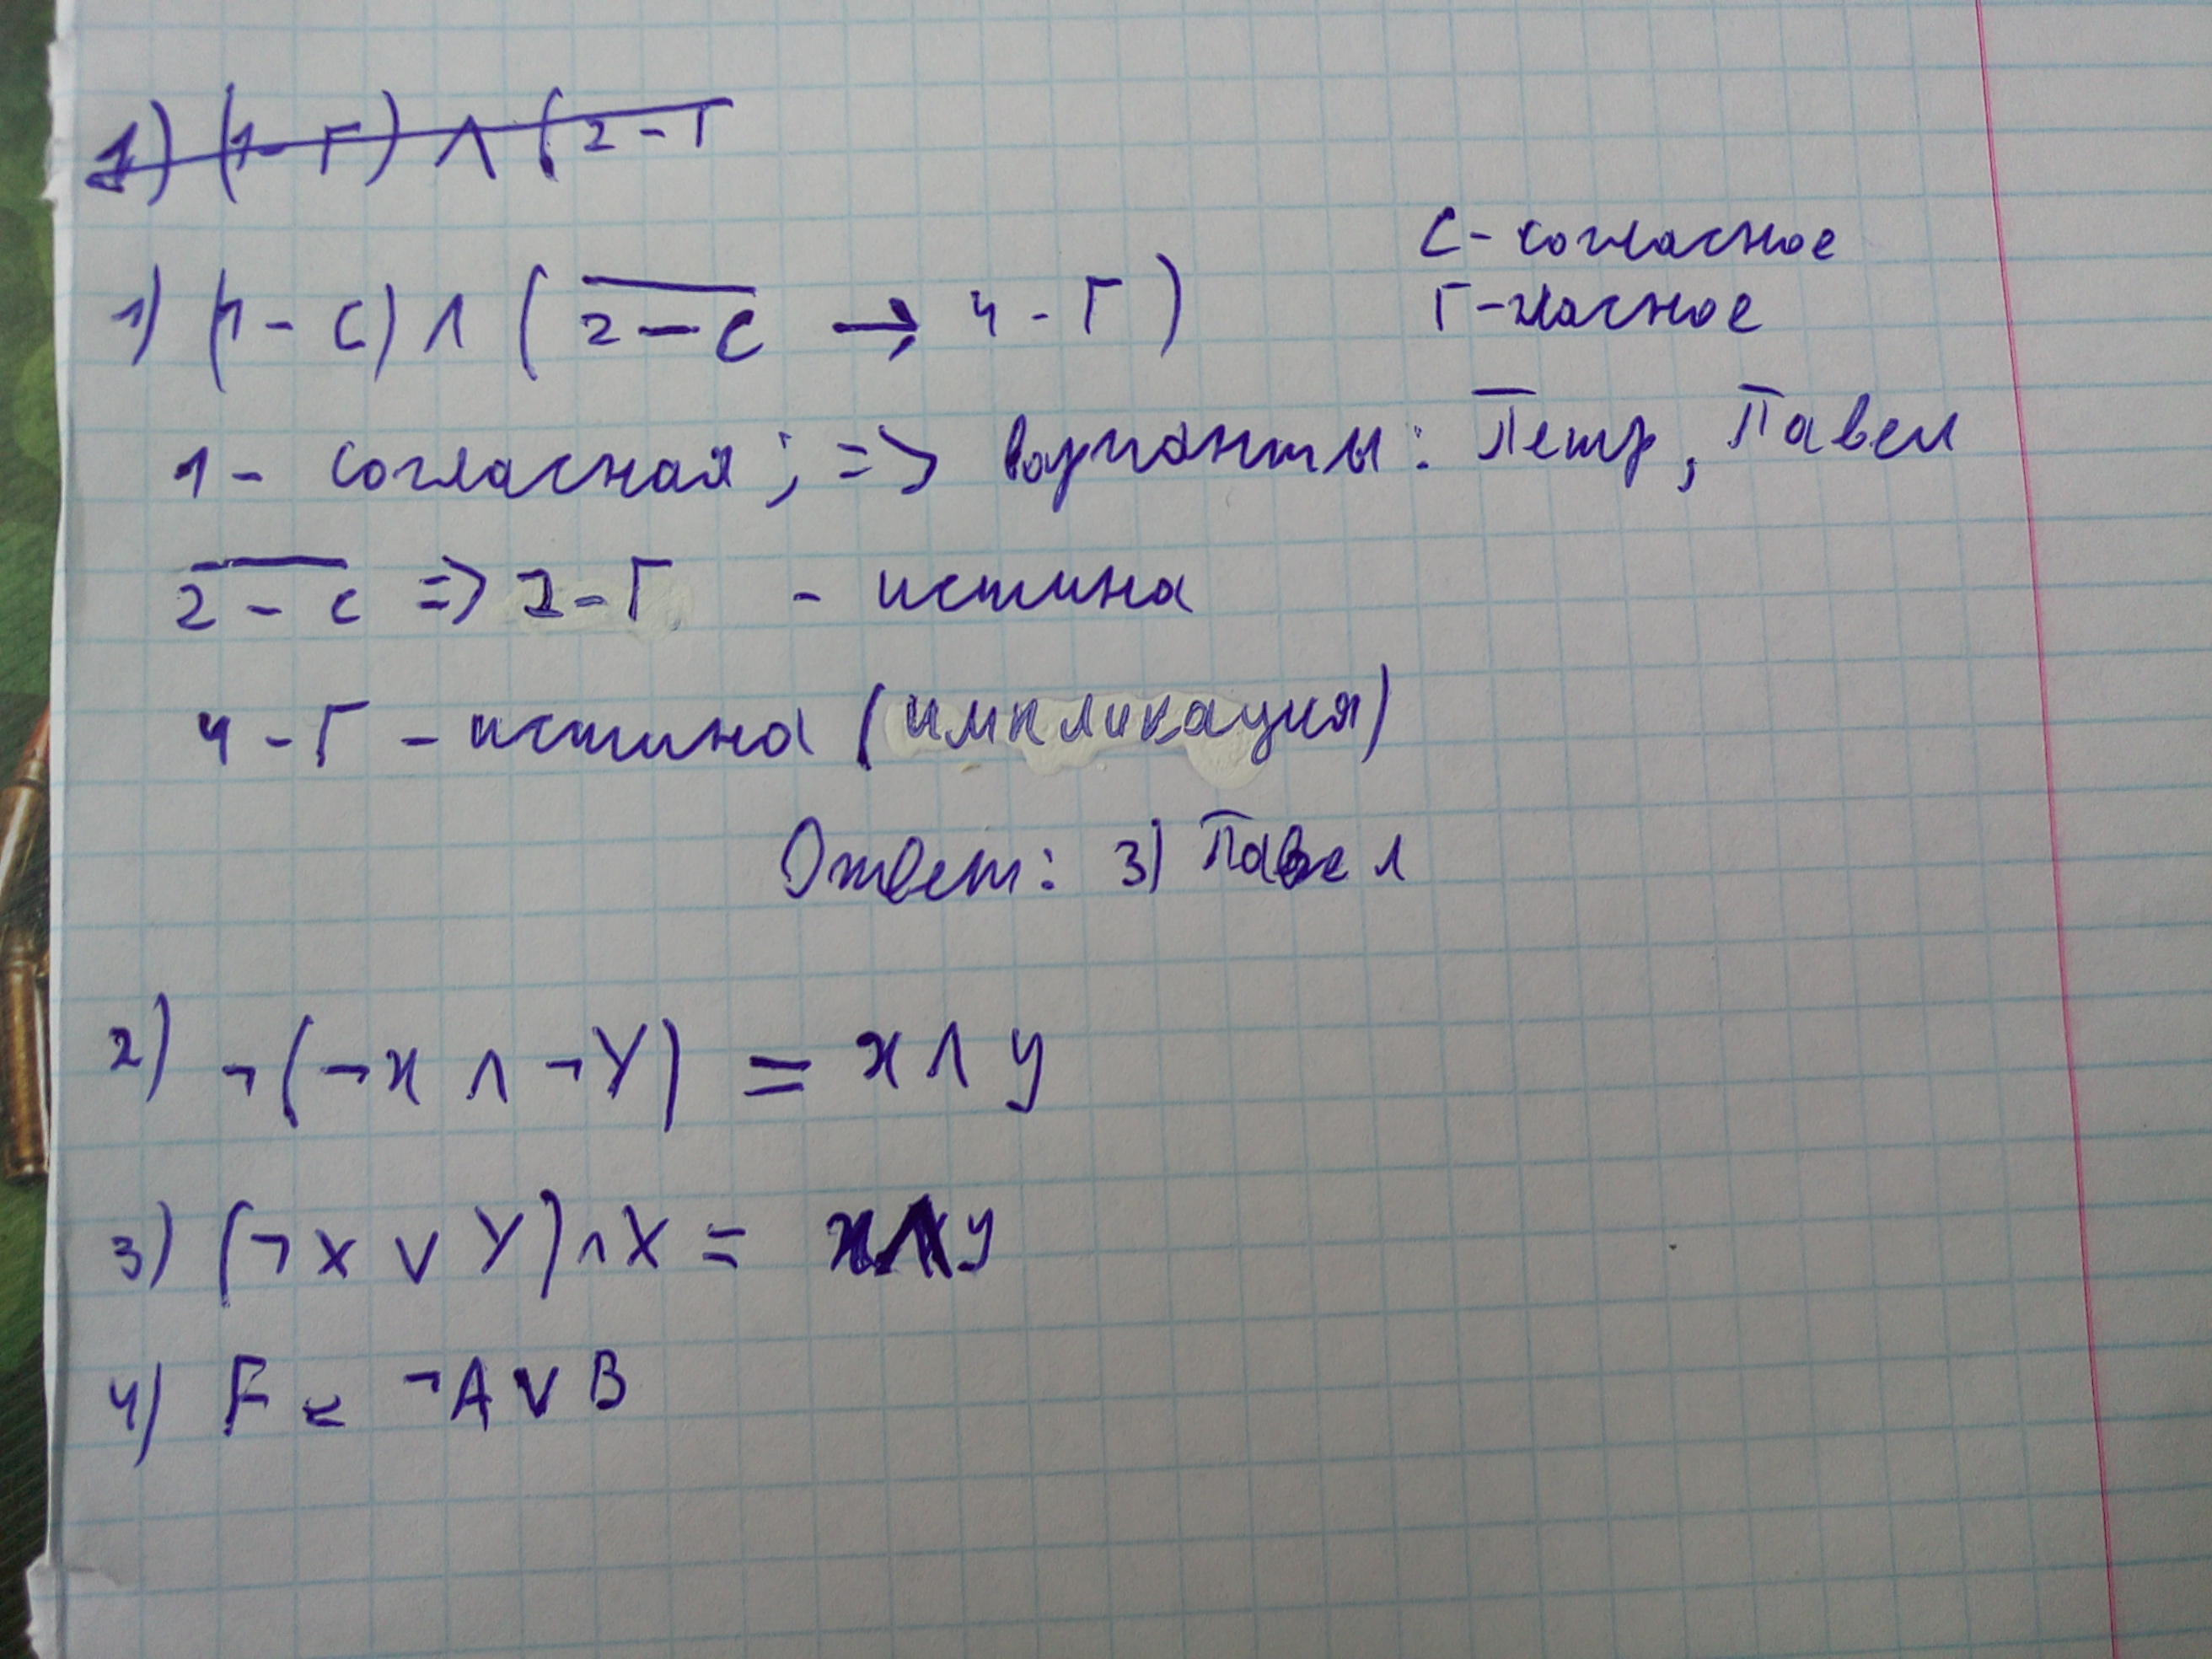 1) (1-Г) ∧ (2-Г
С-согласное
Г-гласное
1) (1-С) ∧ (\overline{2-С} → 4-Г)
1-согласная; => варианты: Петр, Павел
\overline{2-с} => 2-Г - истина
4-Г - истина (импликация)
Ответ: 3) Павел
2) ¬(¬x ∧ ¬Y) = x ∧ y
3) (¬X ∨ Y) ∧ X = x ∧ y
4) F = ¬A ∨ B